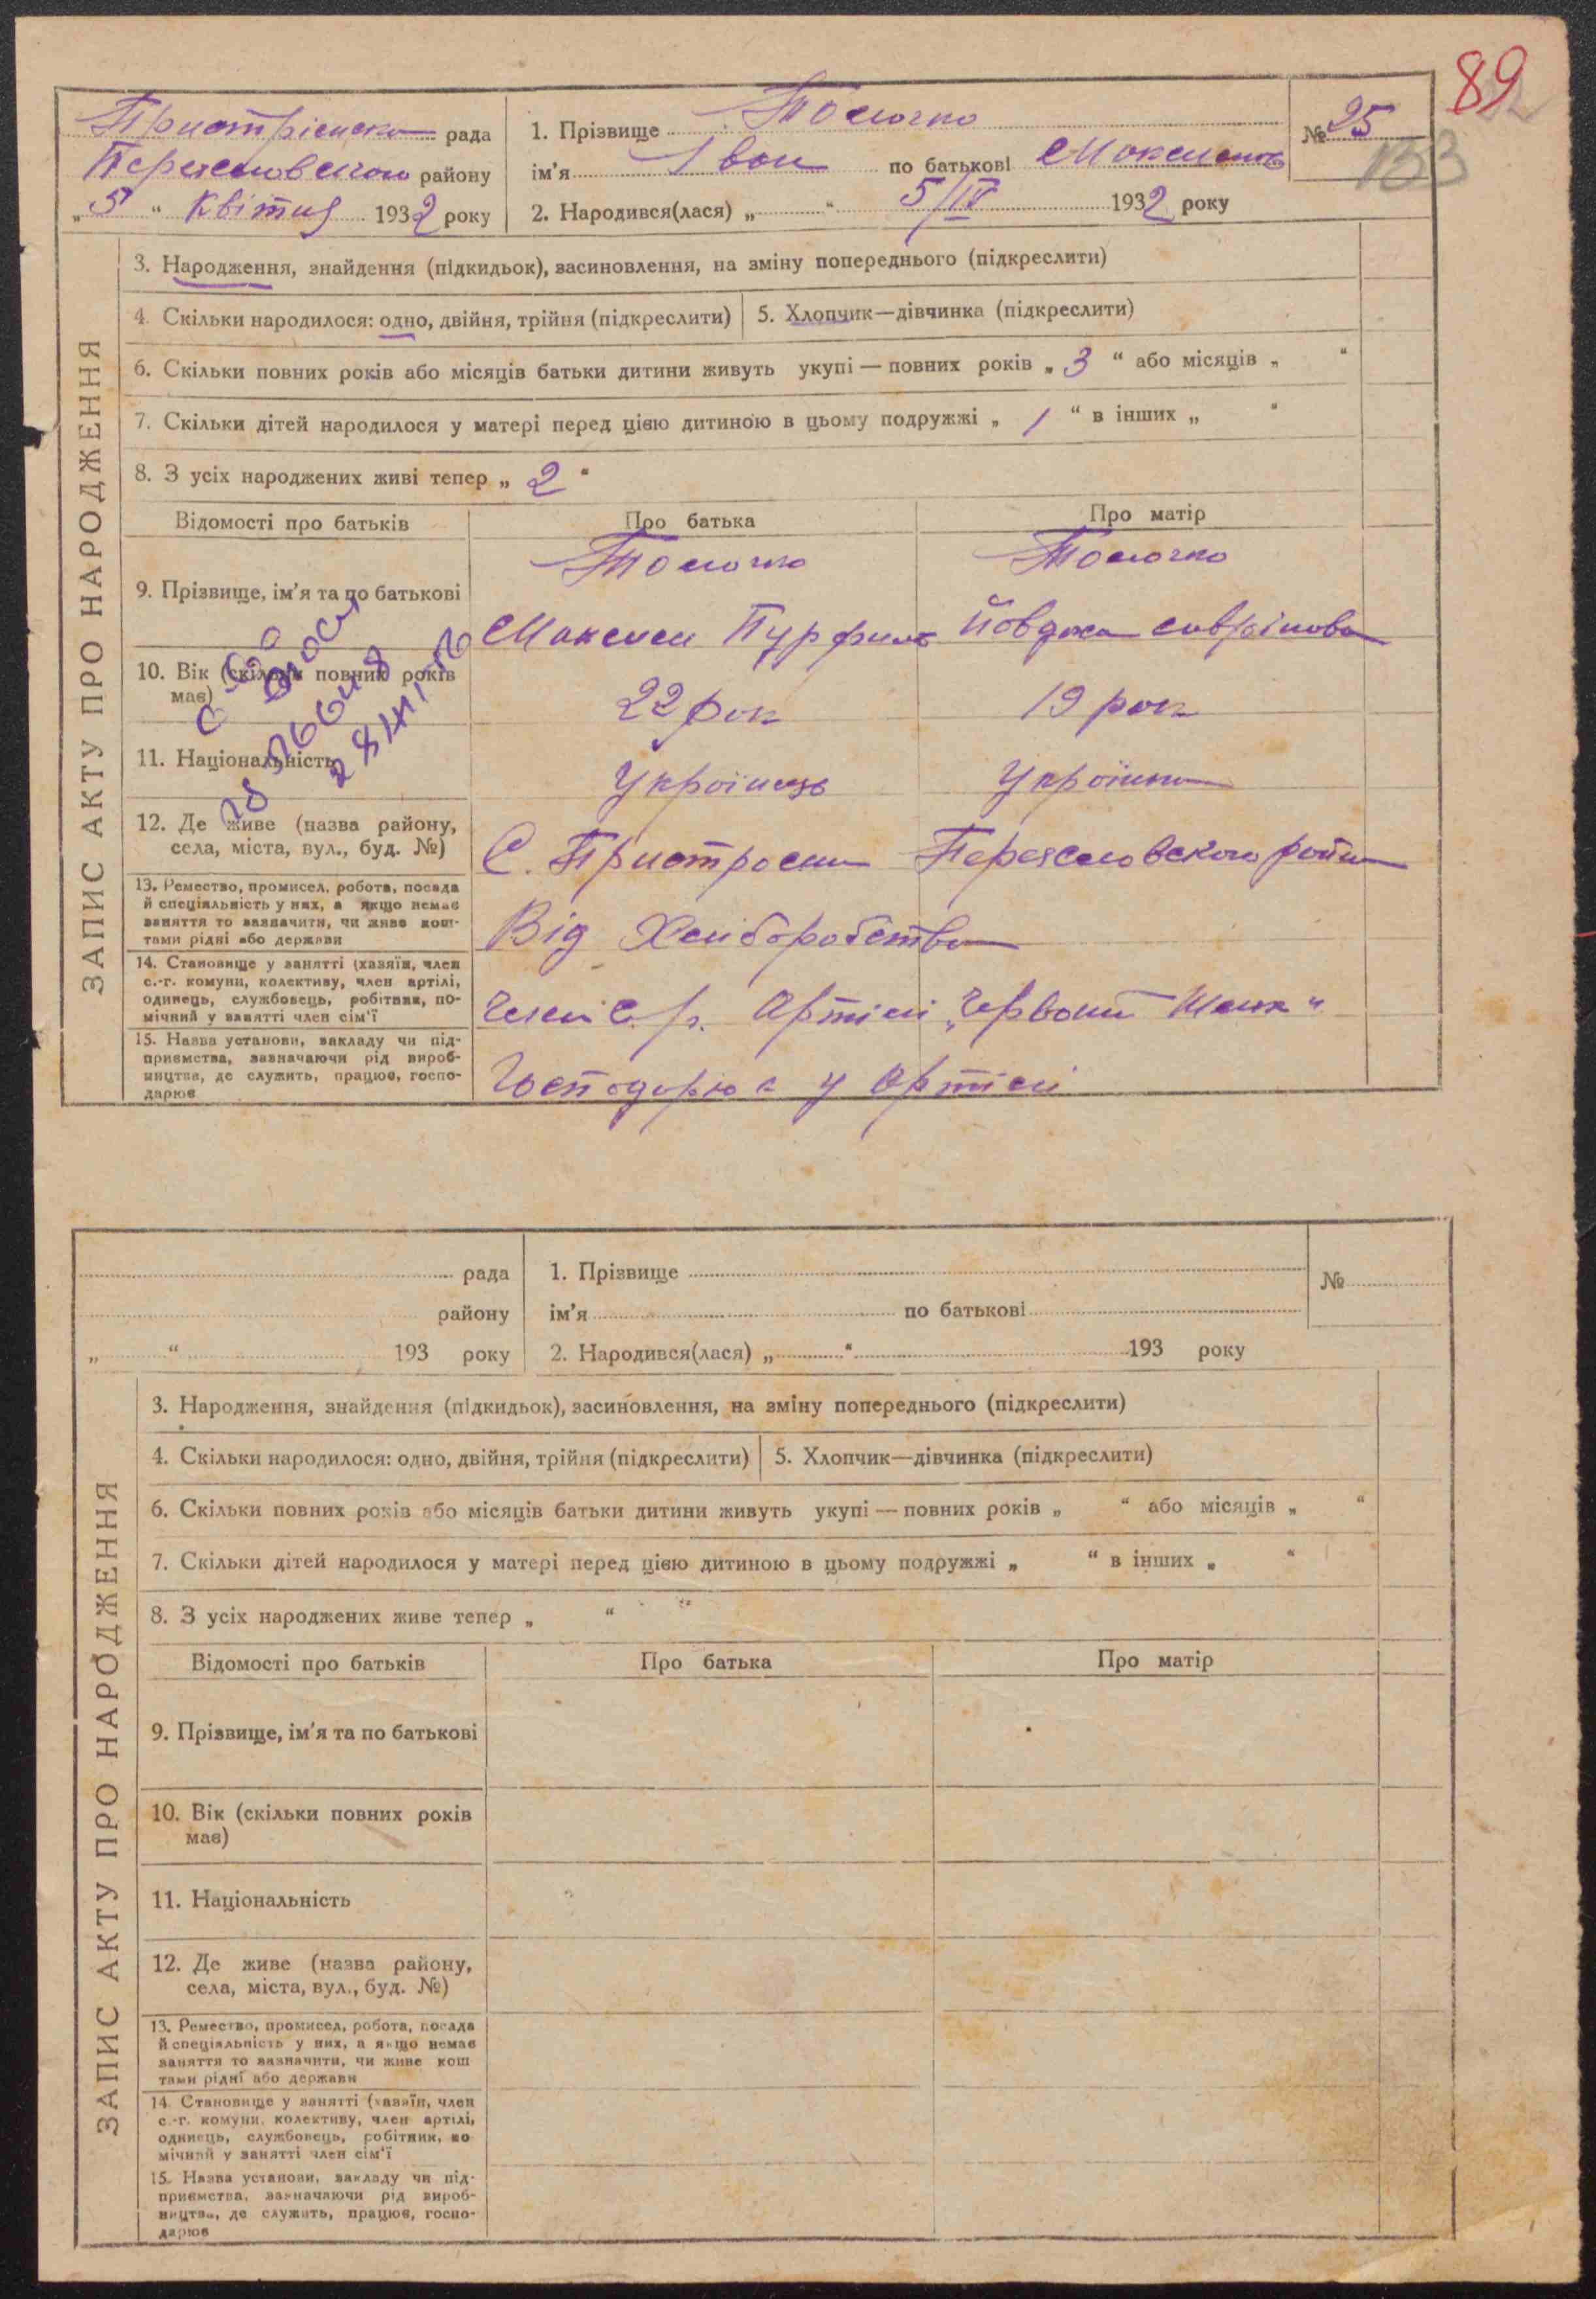 89
Пристрімська рада
Переяславського району
„5“ Квітня 1932 року
1. Прізвище Толочко
ім'я Іван по батькові Максимов
2. Народився(лася) „ “ 5/IV 1932 року
№ 25
133
ЗАПИС АКТУ ПРО НАРОДЖЕННЯ
3. Народження, знайдення (підкидьок), засиновлення, на зміну попереднього (підкреслити)
4. Скільки народилося: одно, двійня, трійня (підкреслити)
5. Хлопчик—дівчинка (підкреслити)
6. Скільки повних років або місяців батьки дитини живуть укупі — повних років „ 3 “ або місяців „ “
7. Скільки дітей народилося у матері перед цією дитиною в цьому подружжі „ 1 “ в інших „ “
8. З усіх народжених живі тепер „ 2 “
Відомості про батьків
Про батька
Про матір
9. Прізвище, ім'я та по батькові
Толочко
Толочко
Максим
Йовдоха
10. Вік (скільки повних років
має)
22 рок
19 рок
11. Національність
Українець
Українка
12. Де живе (назва району,
села, міста, вул., буд. №)
С. Пристроми Переяславского район
13. Ремество, промисел, робота, посада
й спеціяльність у них, а якщо немає
заняття то зазначити, чи живе кош-
тами рідні або держави
Від Хлиборобства
14. Становище у занятті (хазяїн, член
с.-г. комуни, колективу, член артілі,
одинець, службовець, робітник, по-
мічний у занятті член сім'ї
Член Артілі „Червоний Шлях“
15. Назва установи, закладу чи під-
приємства, зазначаючи рід вироб-
ництва, де служить, працює, госпо-
дарює
Господарює у Артілі
рада
району
„ “ 193 року
1. Прізвище
ім'я по батькові
2. Народився(лася) „ “ 193 року
№
ЗАПИС АКТУ ПРО НАРОДЖЕННЯ
3. Народження, знайдення (підкидьок), засиновлення, на зміну попереднього (підкреслити)
4. Скільки народилося: одно, двійня, трійня (підкреслити)
5. Хлопчик—дівчинка (підкреслити)
6. Скільки повних років або місяців батьки дитини живуть укупі — повних років „ “ або місяців „ “
7. Скільки дітей народилося у матері перед цією дитиною в цьому подружжі „ “ в інших „ “
8. З усіх народжених живе тепер „ “
Відомості про батьків
Про батька
Про матір
9. Прізвище, ім'я та по батькові
10. Вік (скільки повних років
має)
11. Національність
12. Де живе (назва району,
села, міста, вул., буд. №)
13. Ремество, промисел, робота, посада
й спеціяльність у них, а якщо немає
заняття то зазначити, чи живе кош
тами рідні або держави
14. Становище у занятті (хазяїн, член
с.-г. комуни, колективу, член артілі,
одинець, службовець, робітник, по
мічний у занятті член сім'ї
15. Назва установи, закладу чи під-
приємства, зазначаючи рід вироб-
ництва, де служить, працює, госпо-
дарює